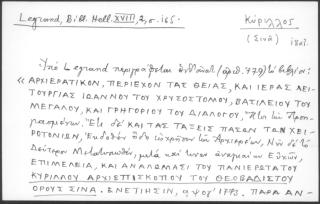 Legrand, Bibl. Hell. XVIII, 2, σ. 165.
Κύριλλος
(Σινᾶ)
Ὑπὸ Legrand περιγράφεται (ἀριθ. 779) τὸ βιβλίον:
«ΑΡΧΙΕΡΑΤΙΚΟΝ, ΠΕΡΙΕΧΟΝ ΤΑΣ ΘΕΙΑΣ, ΚΑΙ ΙΕΡΑΣ ΛΕΙ-
ΤΟΥΡΓΙΑΣ ΙΩΑΝΝΟΥ ΤΟΥ ΧΡΥΣΟΣΤΟΜΟΥ, ΒΑΣΙΛΕΙΟΥ ΤΟΥ
ΜΕΓΑΛΟΥ, ΚΑΙ ΓΡΗΓΟΡΙΟΥ ΤΟΥ ΔΙΑΛΟΓΟΥ, Ἤτοι τῶν Προη-
γιασμένων. Ἔτι δὲ ΚΑΙ ΤΑΣ ΤΑΞΕΙΣ ΠΑΣΩΝ ΤΩΝ ΧΕΙ-
ΡΟΤΟΝΙΩΝ, Ἐκδοθὲν τῶν Ἀρχιερέων, Νῦν δὲ τὸ
Δεύτερον Μετατυπωθὲν, μετὰ καὶ ἀναγκαίων Εὐχῶν,
ΕΠΙΜΕΛΕΙΑ, ΚΑΙ ΑΝΑΛΩΜΑΣΙ ΤΟΥ ΠΑΝΙΕΡΩΤΑΤΟΥ
ΚΥΡΙΛΛΟΥ ΑΡΧΙΕΠΙΣΚΟΠΟΥ ΤΟΥ ΘΕΟΒΑΔΙΣΤΟΥ
ΟΡΟΥΣ ΣΙΝΑ. ΕΝΕΤΙΗΣΙΝ, 1773. ΠΑΡΑ ΑΝ-